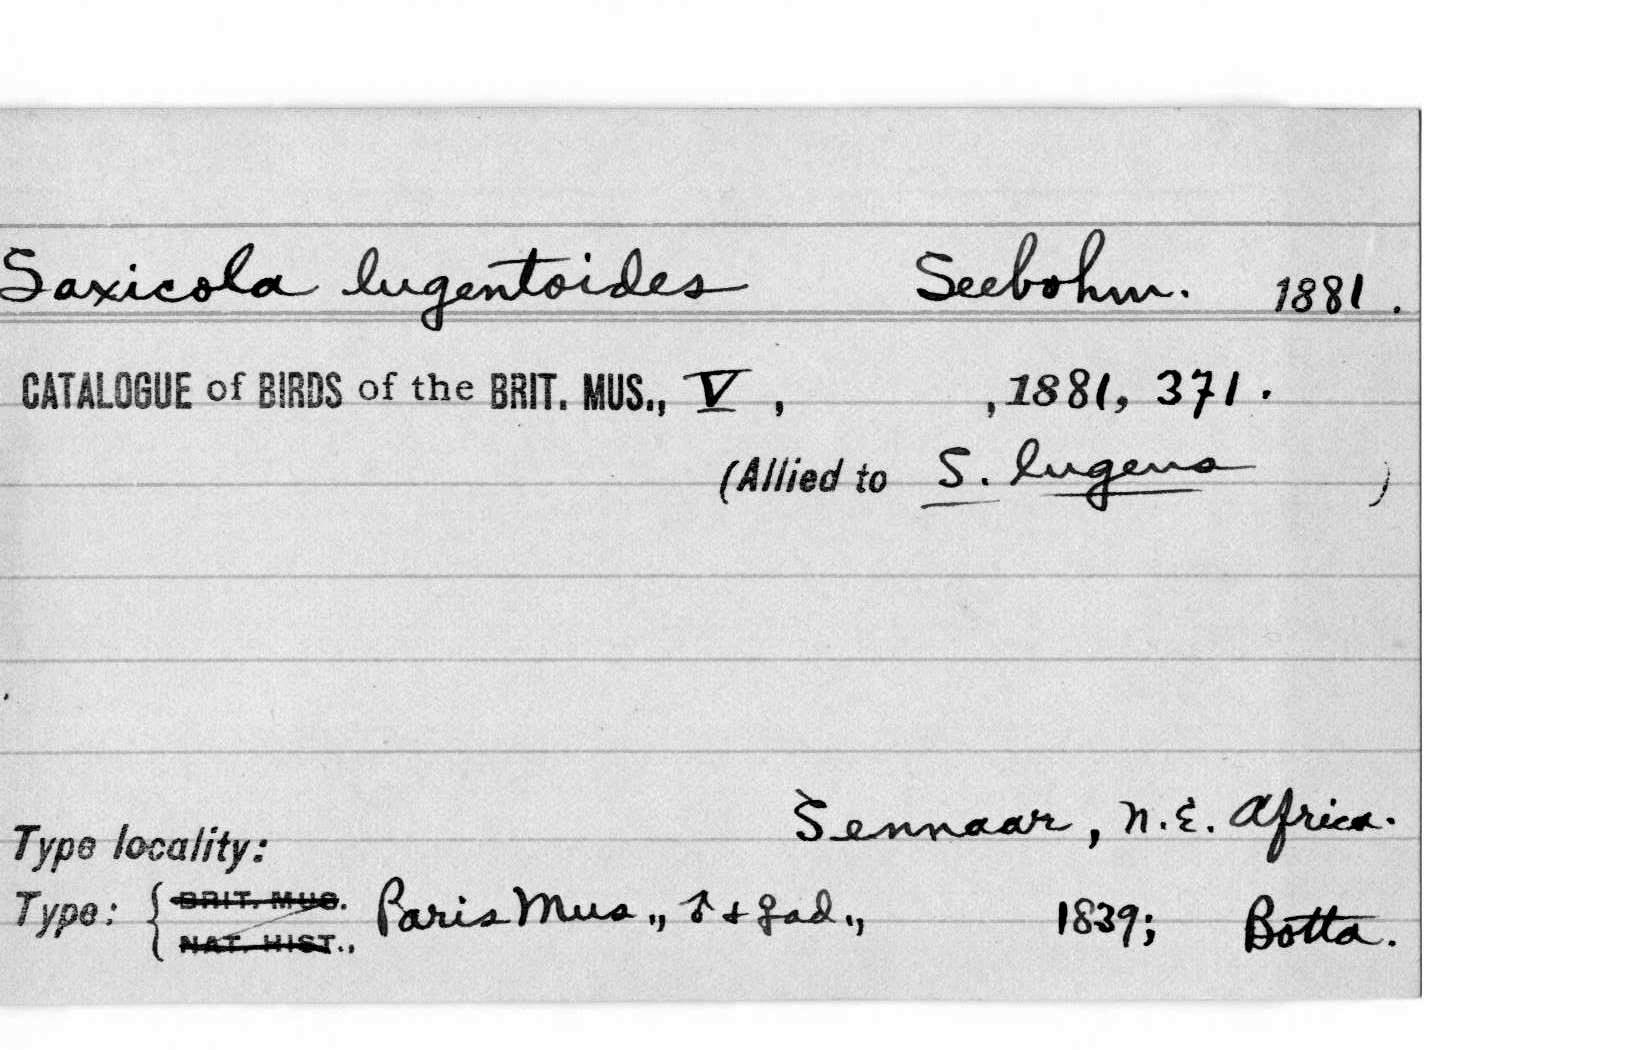 Saxicola lugentoides Seebohm. 1881.
CATALOGUE of BIRDS of the BRIT. MUS., V, , 1881, 371.
(Allied to S. lugens )
Sennaar, N.E. Africa.
Type locality:
Type: { BRIT. MUS. Paris Mus., ♂ + ♀ ad., 1839; Botta.
NAT. HIST.,